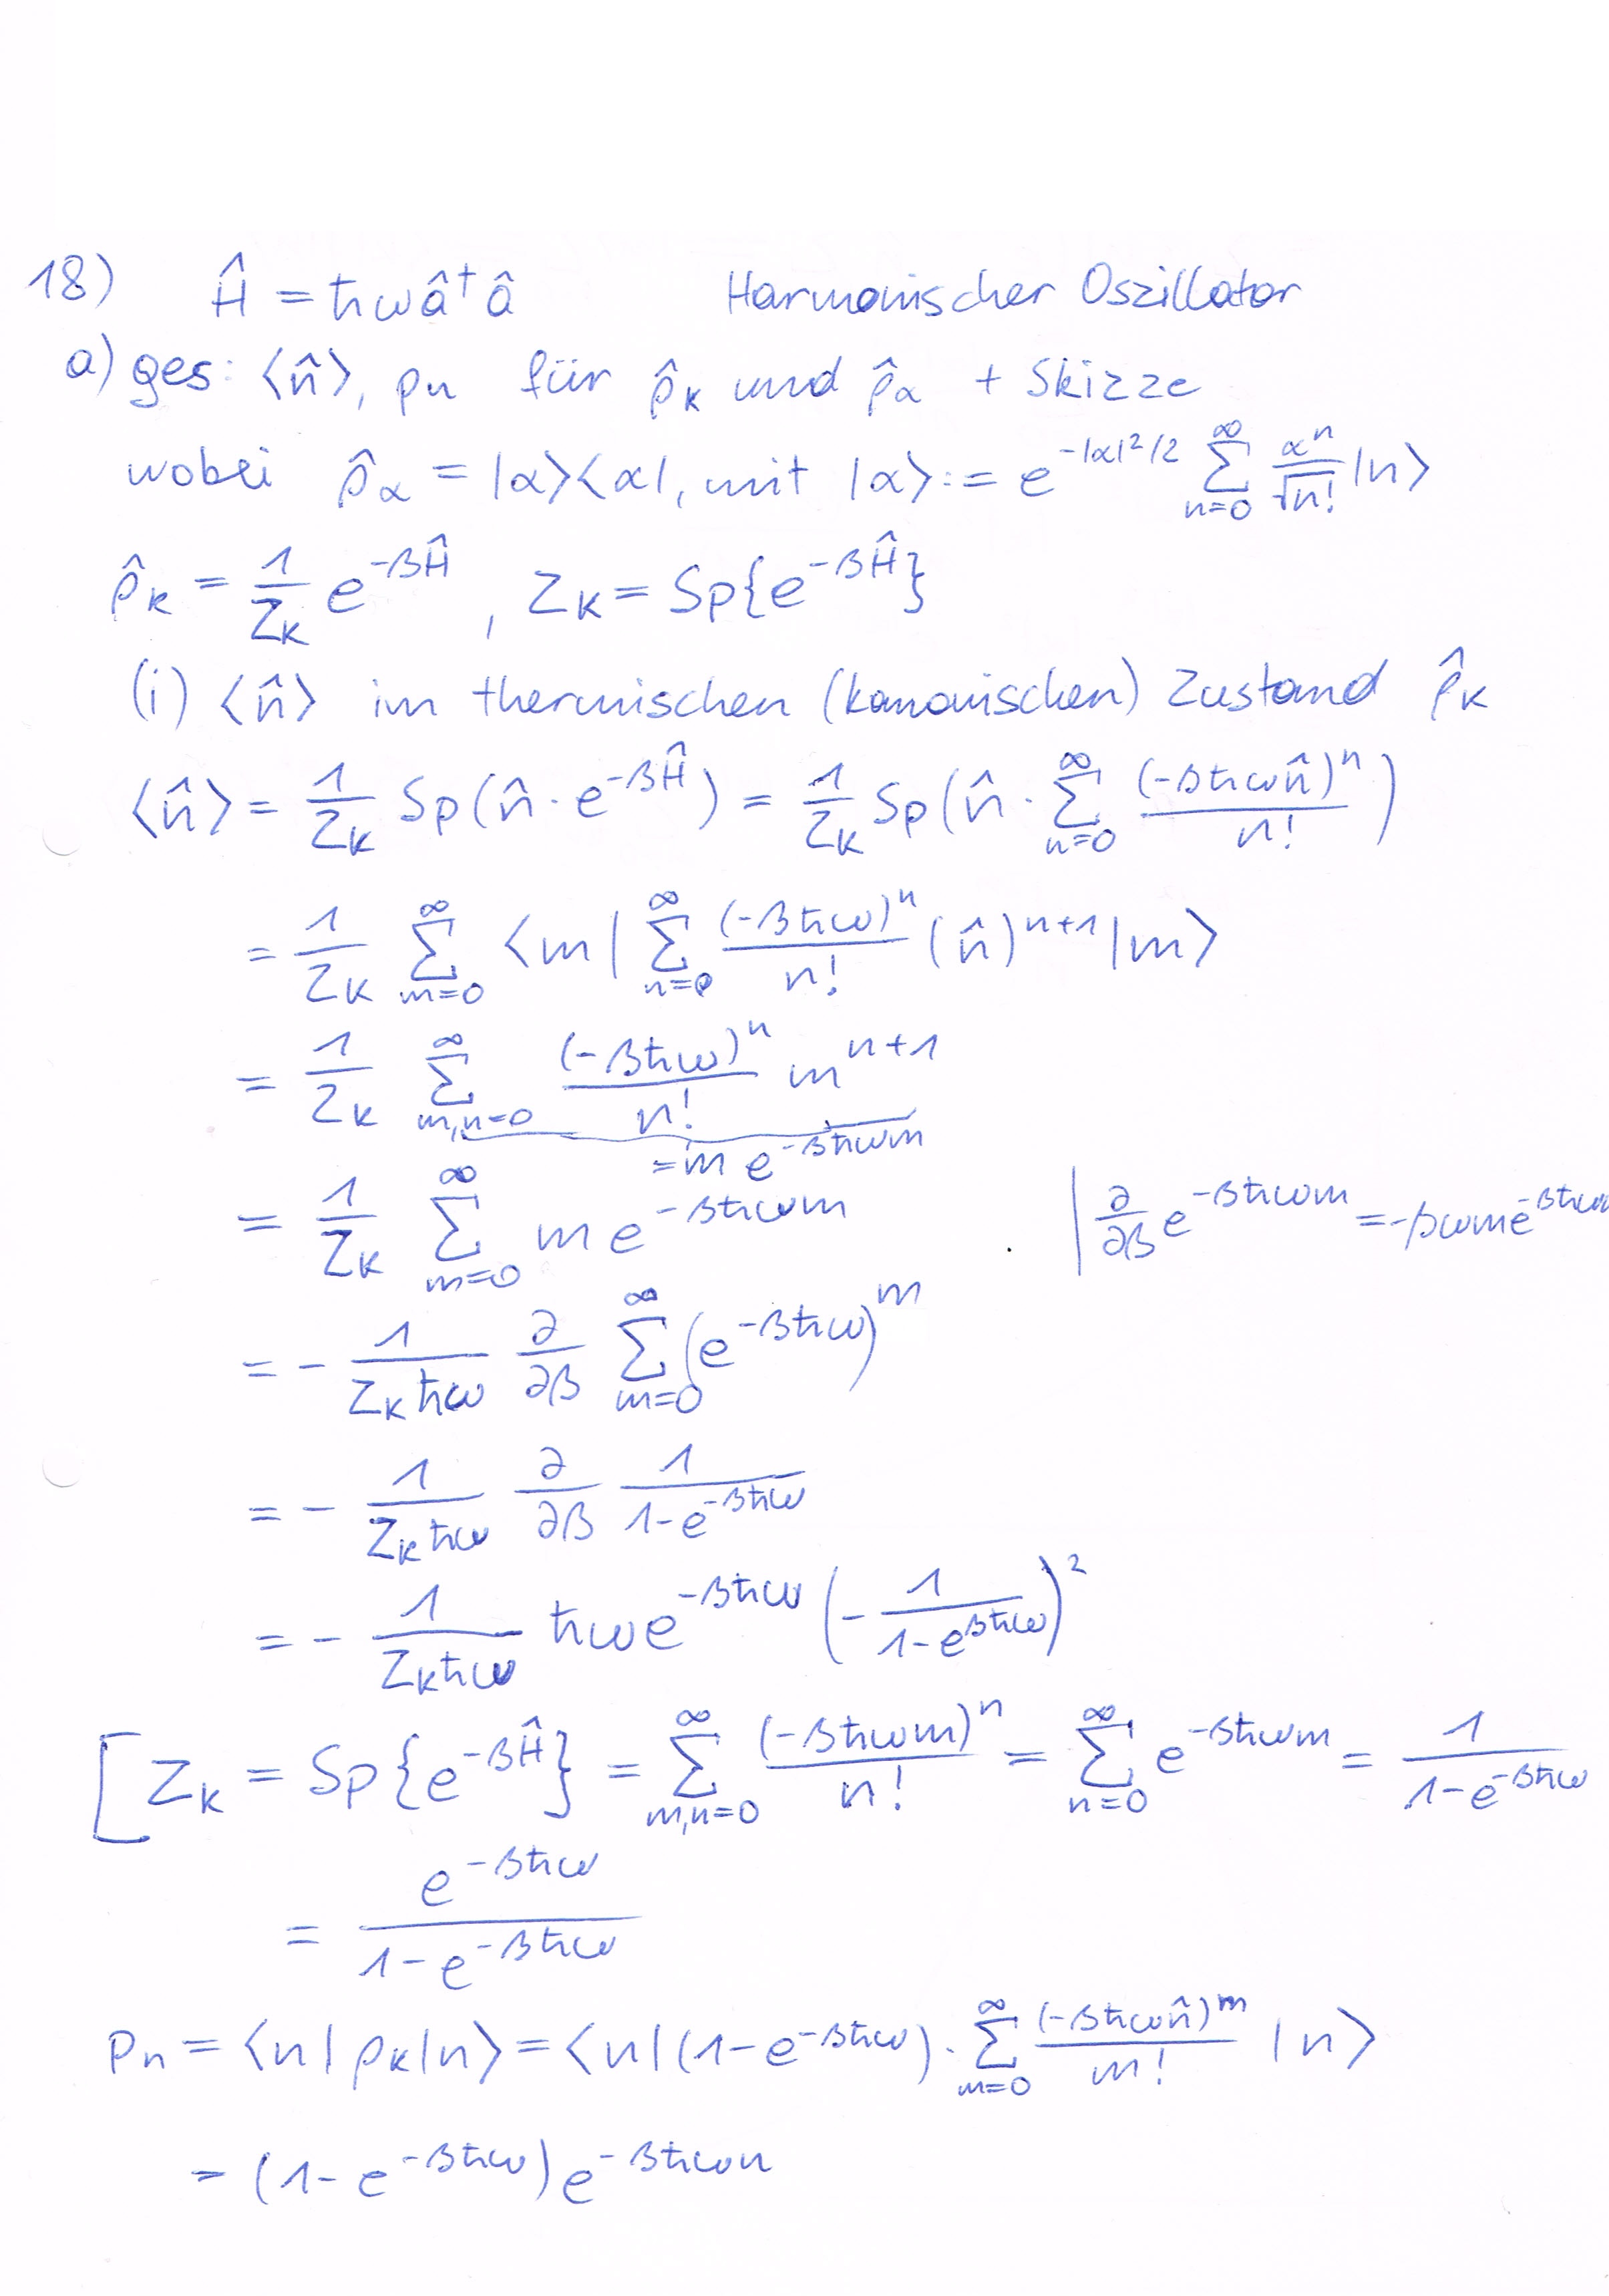 18) Ĥ = ħω â† â Harmonischer Oszillator
a) ges: ⟨n̂⟩, pn für ρ̂_K und ρ̂_α + Skizze
wobei ρ̂_α = |α⟩⟨α|, mit |α⟩ := e^{-|α|²/2} Σ_{n=0}^{∞} α^n/√n! |n⟩
ρ̂_K = 1/Z_K e^{-βĤ}, Z_K = Sp{e^{-βĤ}}
(i) ⟨n̂⟩ im thermischen (kanonischen) Zustand ρ̂_K
⟨n̂⟩ = 1/Z_K Sp(n̂ · e^{-βĤ}) = 1/Z_K Sp(n̂ · Σ_{n=0}^{∞} (-βħωn̂)^n/n!)
= 1/Z_K Σ_{m=0}^{∞} ⟨m| Σ_{n=0}^{∞} (-βħω)^n/n! (n̂)^{n+1} |m⟩
= 1/Z_K Σ_{m,n=0}^{∞} (-βħω)^n/n! m^{n+1}
= m e^{-βħωm}
= 1/Z_K Σ_{m=0}^{∞} m e^{-βħωm} | ∂/∂β e^{-βħωm} = -βωm e^{-βħω
= - 1/(Z_K ħω) ∂/∂β Σ_{m=0}^{∞} (e^{-βħω})^m
= - 1/(Z_K ħω) ∂/∂β 1/(1-e^{-βħω})
= - 1/(Z_K ħω) ħω e^{-βħω} (- 1/(1-e^{βħω}))²
[ Z_K = Sp{e^{-βĤ}} = Σ_{m,n=0}^{∞} (-βħωm)^n/n! = Σ_{n=0}^{∞} e^{-βħωm} = 1/(1-e^{-βħω})
= e^{-βħω}/(1-e^{-βħω})
Pn = ⟨n|ρ_K|n⟩ = ⟨n|(1-e^{-βħω}) · Σ_{m=0}^{∞} (-βħωn̂)^m/m! |n⟩
= (1-e^{-βħω}) e^{-βħωn}